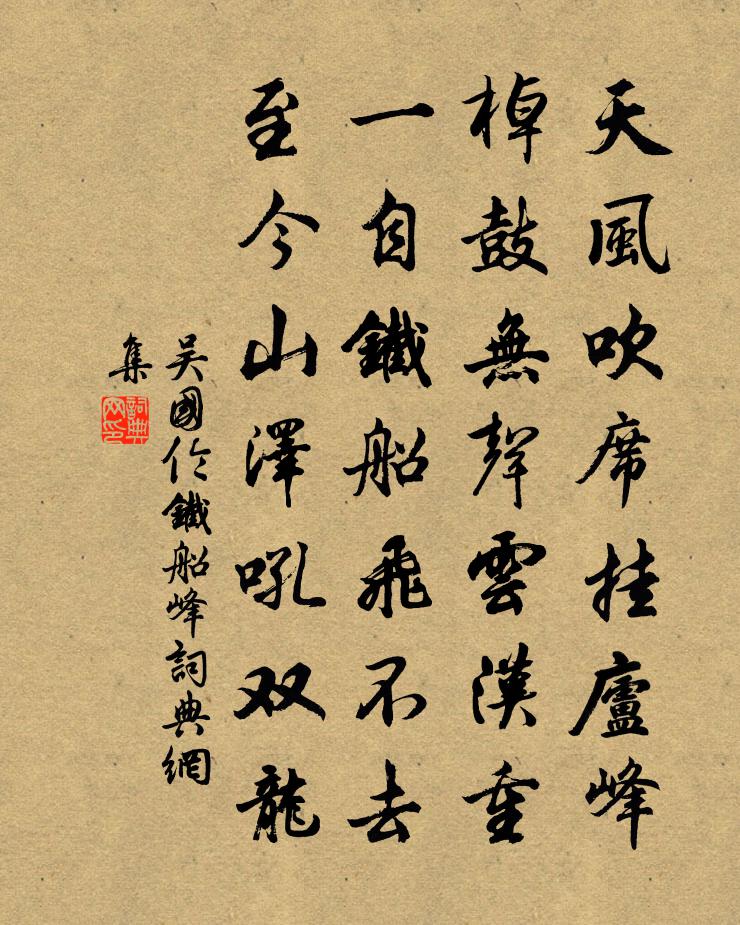 天風吹席挂廬峰
棹鼓無聲雲漢重
一自鐵船飛不去
至今山澤吼双龍
吴國伦鐵船峰詞典網
集
詞典
网印